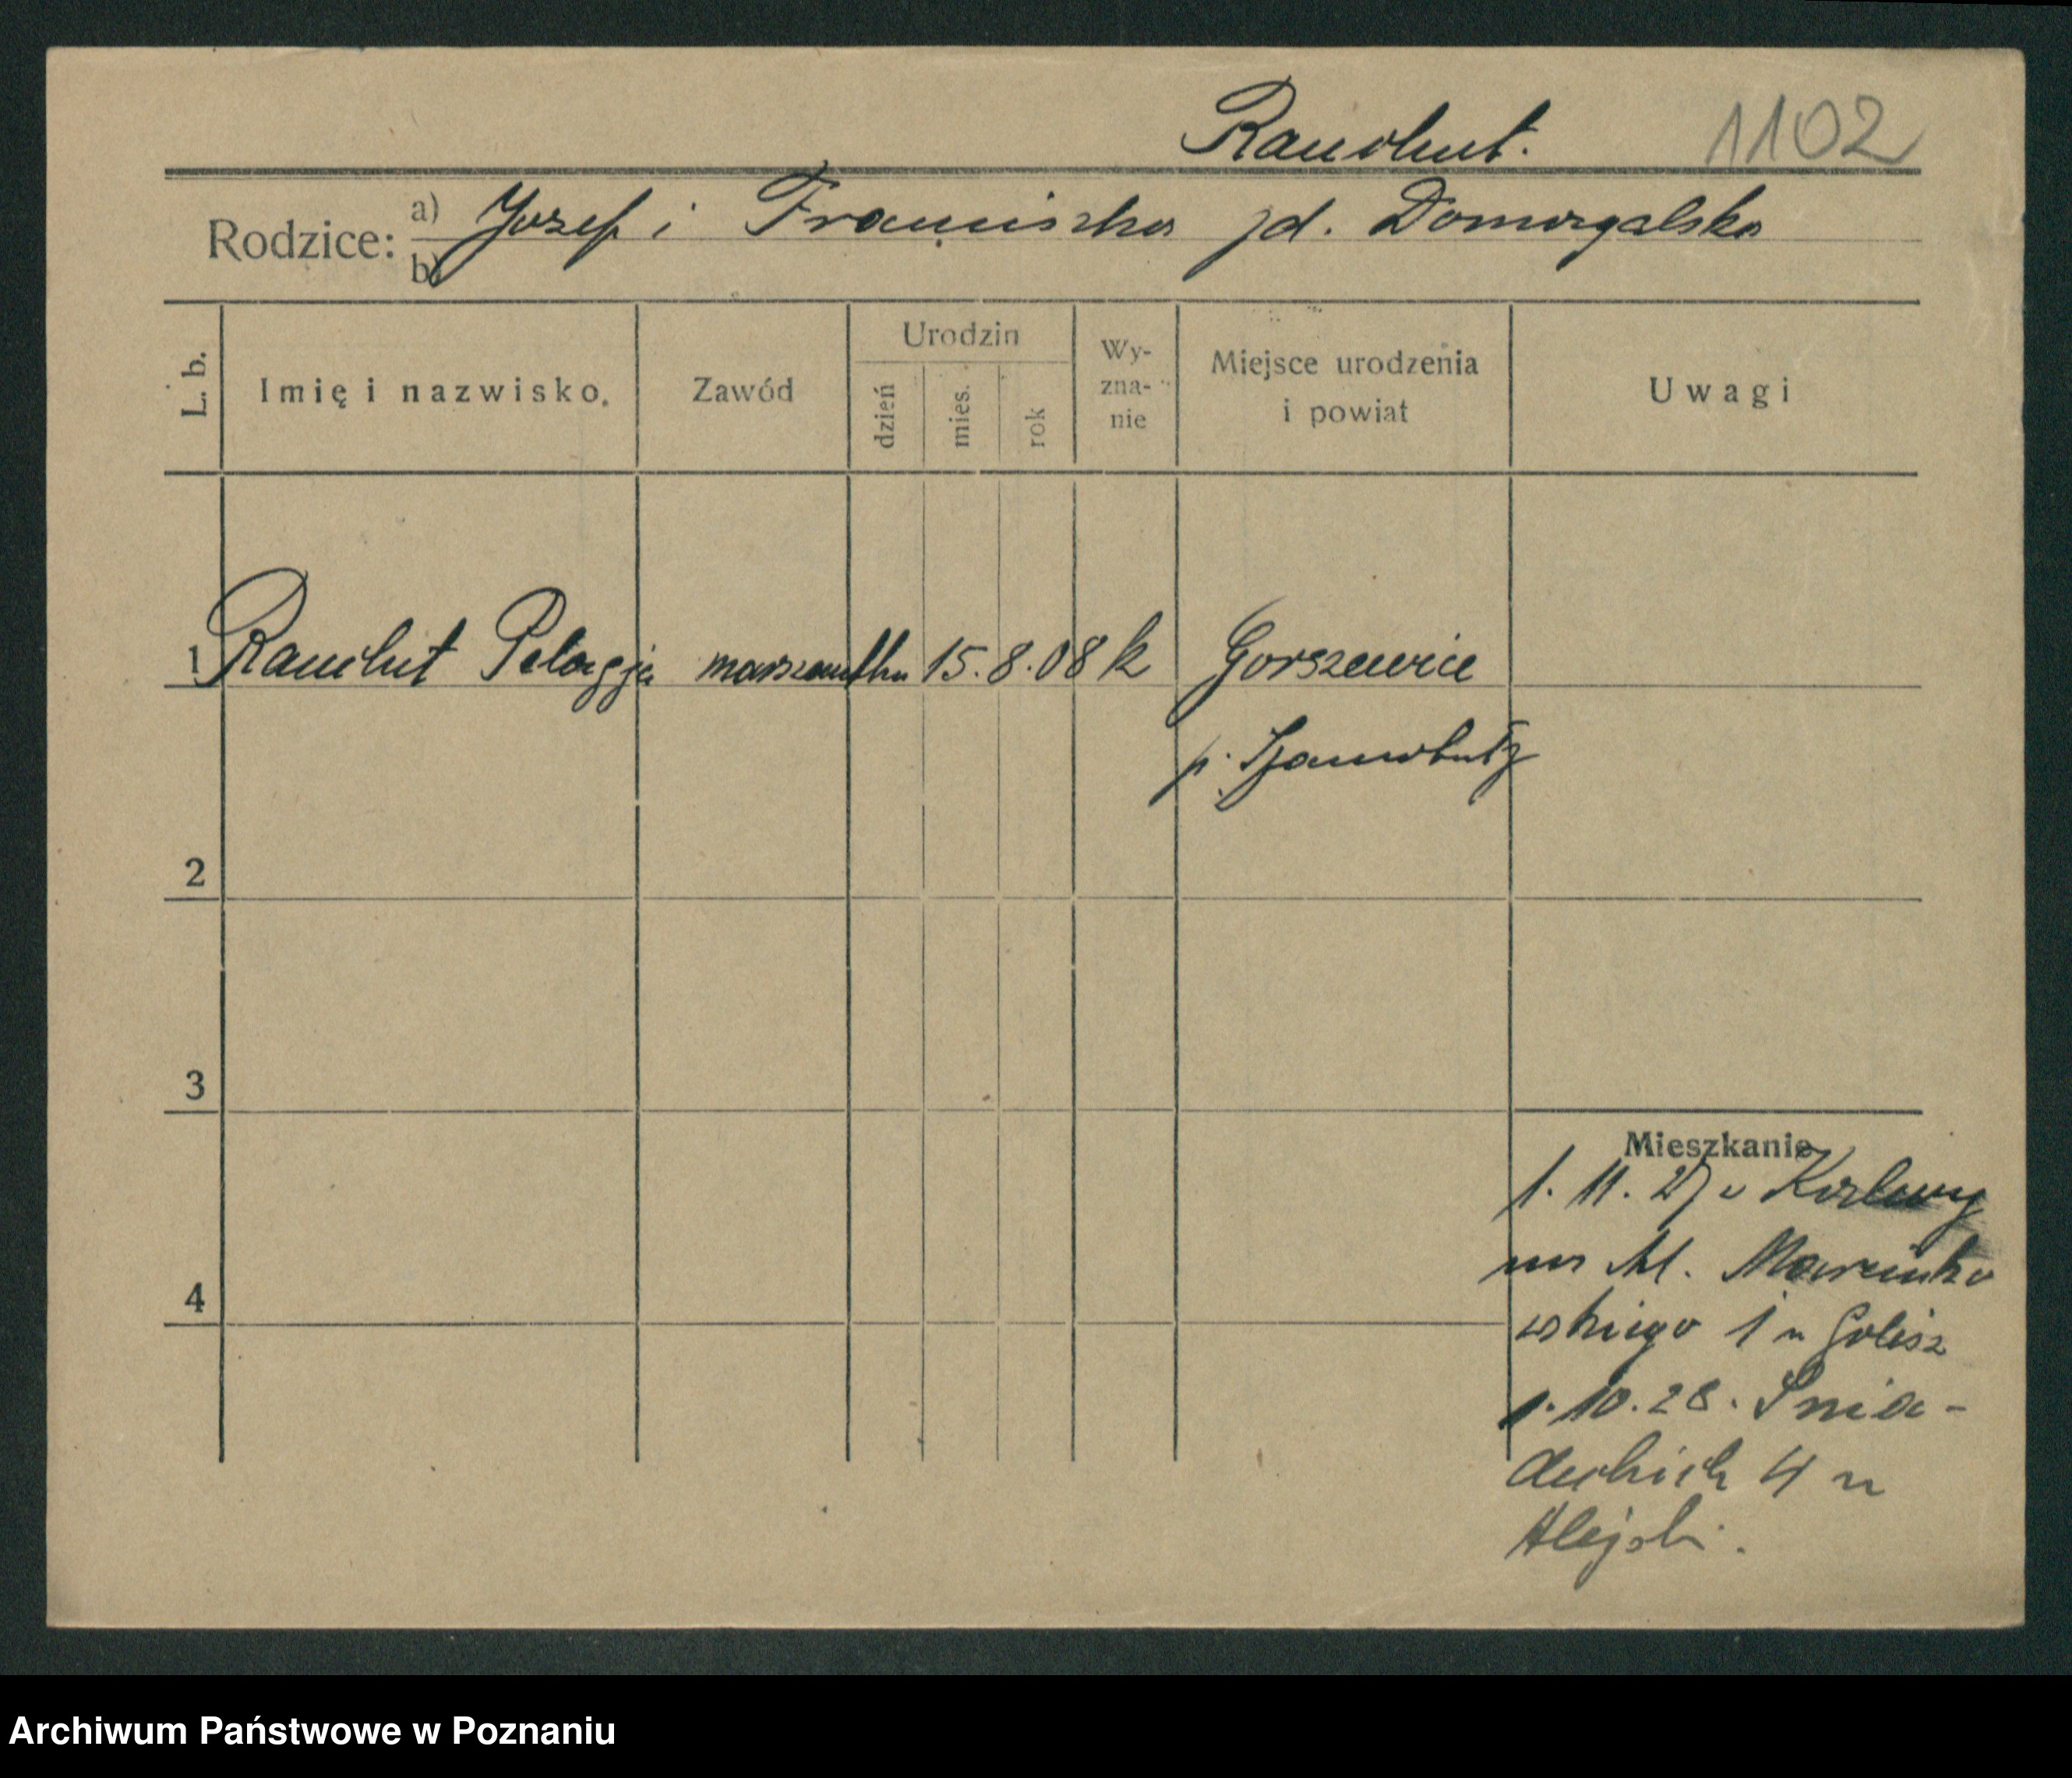 Rauchut. 1102
Rodzice: a) Jozef i Franciszka zd. Domagalska
b)
L. b. Imię i nazwisko. Zawód Urodzin dzień mies. rok Wy- zna- nie Miejsce urodzenia i powiat Uwagi
1 Rauchut Pelagja 15. 8. 08 k Gorszewice
p. Szamotuły
2
3
Mieszkanie
1. 11. 27 v
na Al. Marcinko
4
wskiego 1 u Golisz
1. 10. 28. Śnia-
deckich 4 u
Alejski.
Archiwum Państwowe w Poznaniu